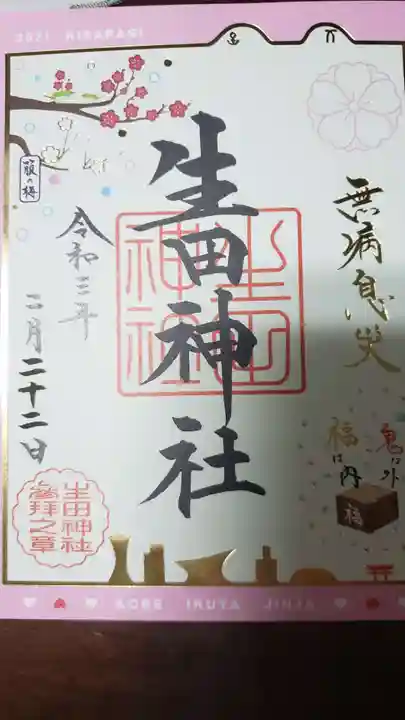 2021 KISARAGI
無病息災
鬼は外
福は内
福
生田神社
生田神社
箙の梅
令和三年
二月二十二日
生田神社
參拝之章
KOBE IKUTA JINJA